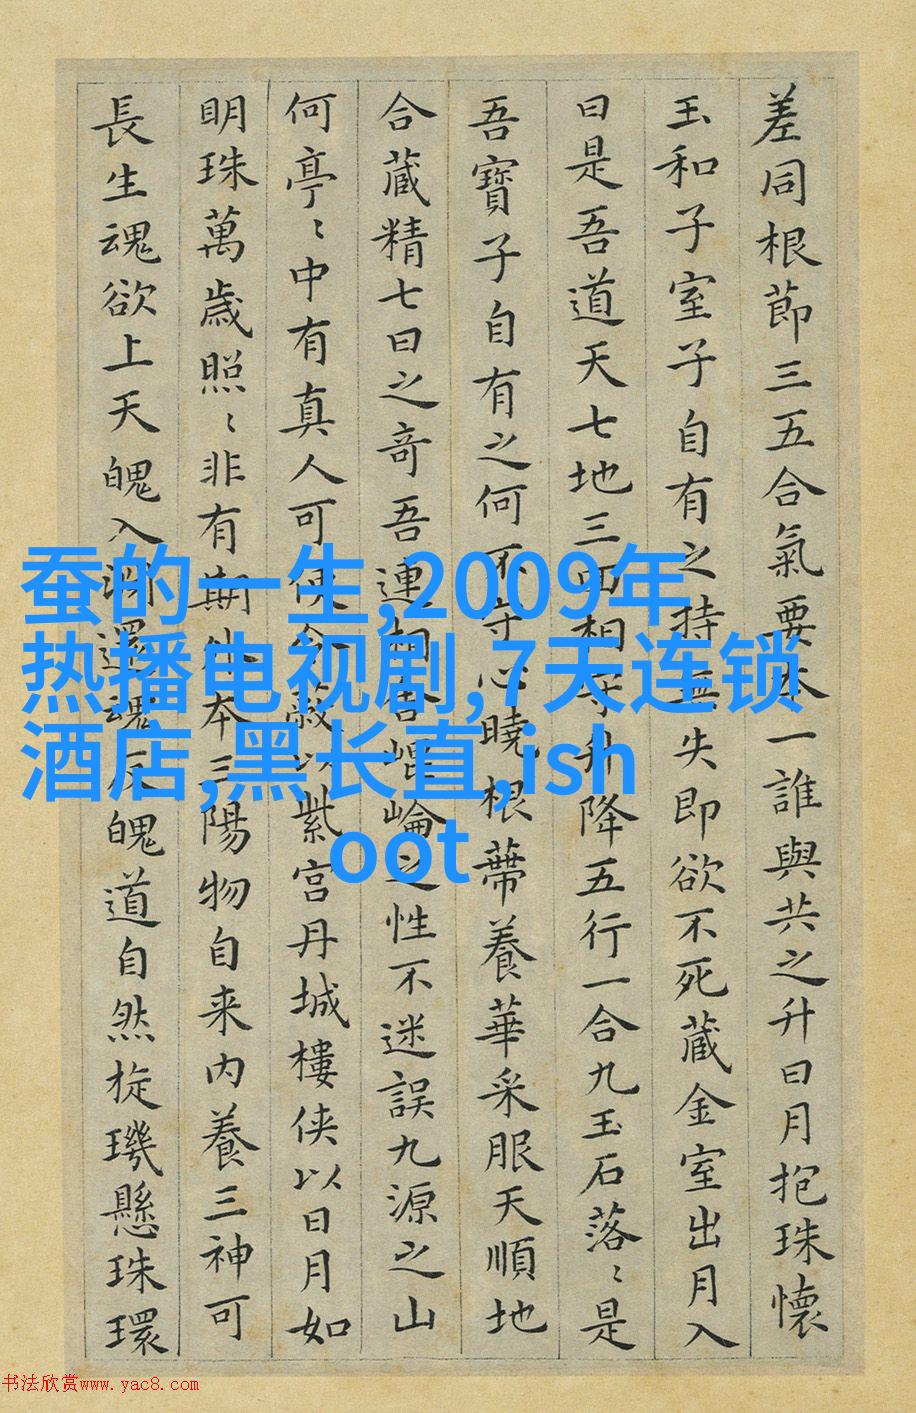 差同根節三五合氣要本一誰與共之升日月抱珠懷
玉和子室子自有之持無失即欲不死藏金室出月入
日是吾道天七地三回相守升降五行一合九玉石落〻是
吾寶子自有之何不守心曉根蔕養華采服天順地
合藏精七日之奇吾連相舍崐崘之性不迷誤九源之山
何亭〻中有真人可使令蔽以紫宫丹城樓侠以日月如
明珠萬歲照〻非有期外本三陽物自来内養三神可
長生魂欲上天魄入淵還魂反魄道自然旋璣懸珠環
蚕的一生,2009年
热播电视剧,7天连锁
酒店,黑长直,ish
oot
书法欣赏www.yac8.com